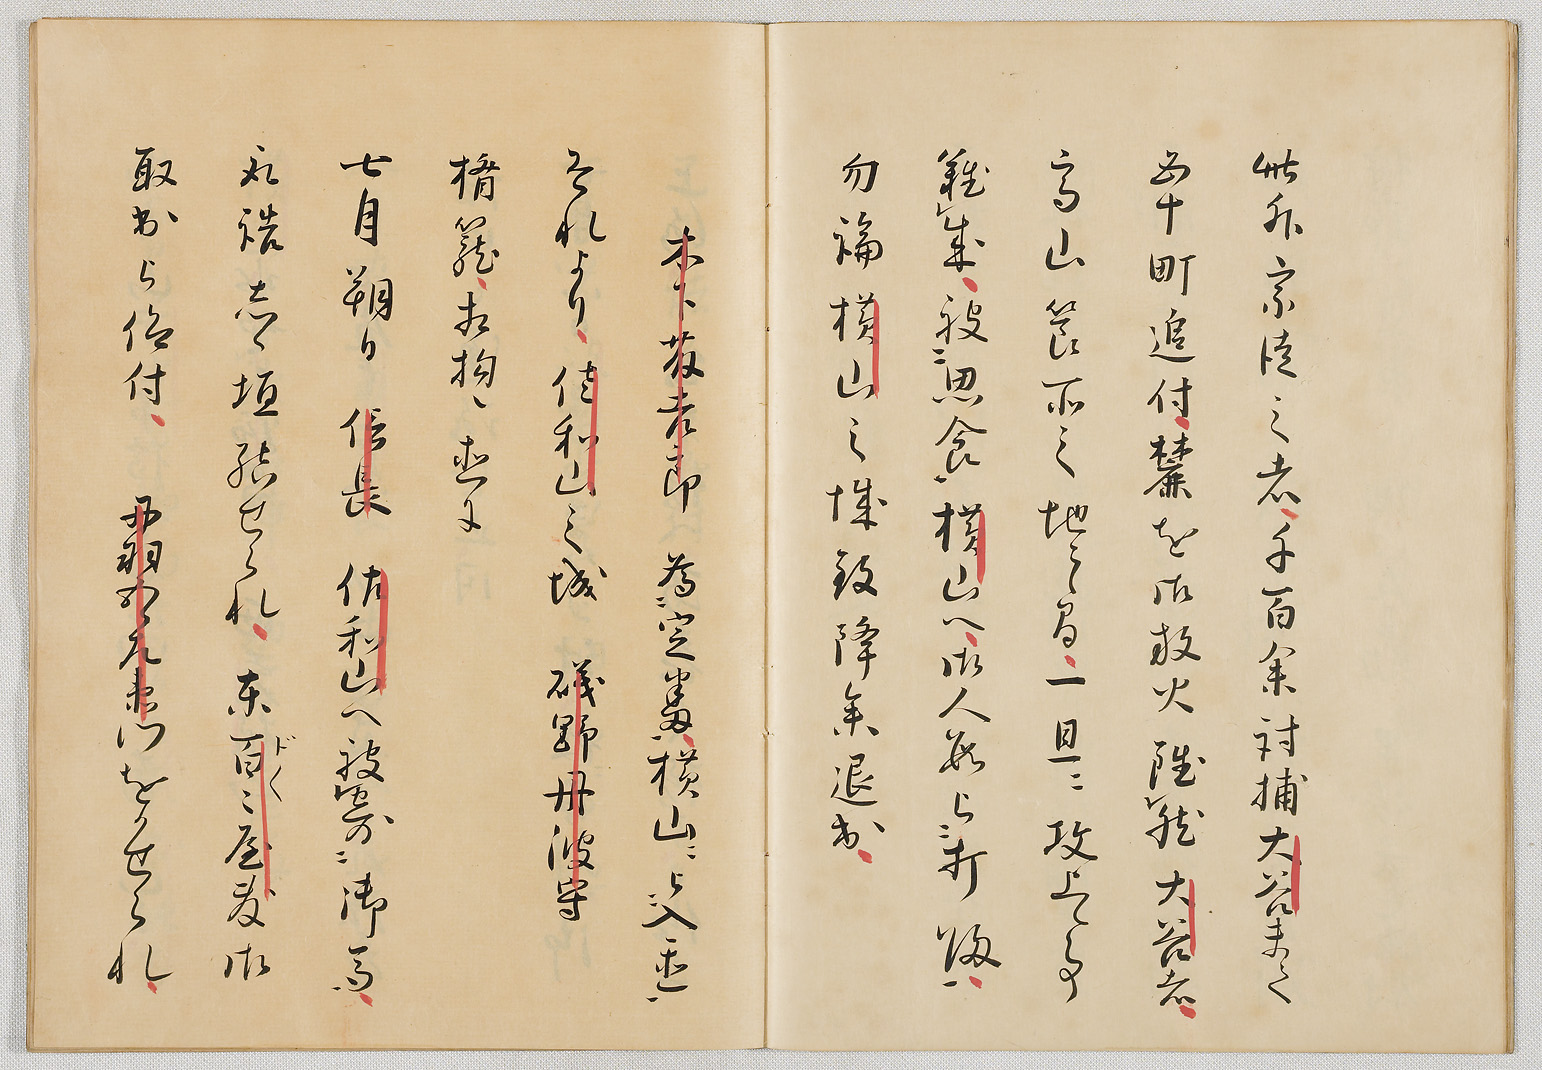 此外宗徒之者千百余討捕大谷まて
五十町追付麓を御放火雖然大谷者
高山節所之地に候間一旦ニ攻上る事
難成被思食横山へ御人数被打帰
勿論横山之城致降参退出
木下藤吉郎為定番横山ニ被入置
それより佐和山之城磯野丹波守
楯籠相拘へ直に
七月朔日信長佐和山へ被寄御馬
取詰志ゝ垣結せられ東百々屋敷御
ドヽ
取出被仰付丹羽五郎左衛門をかせられ